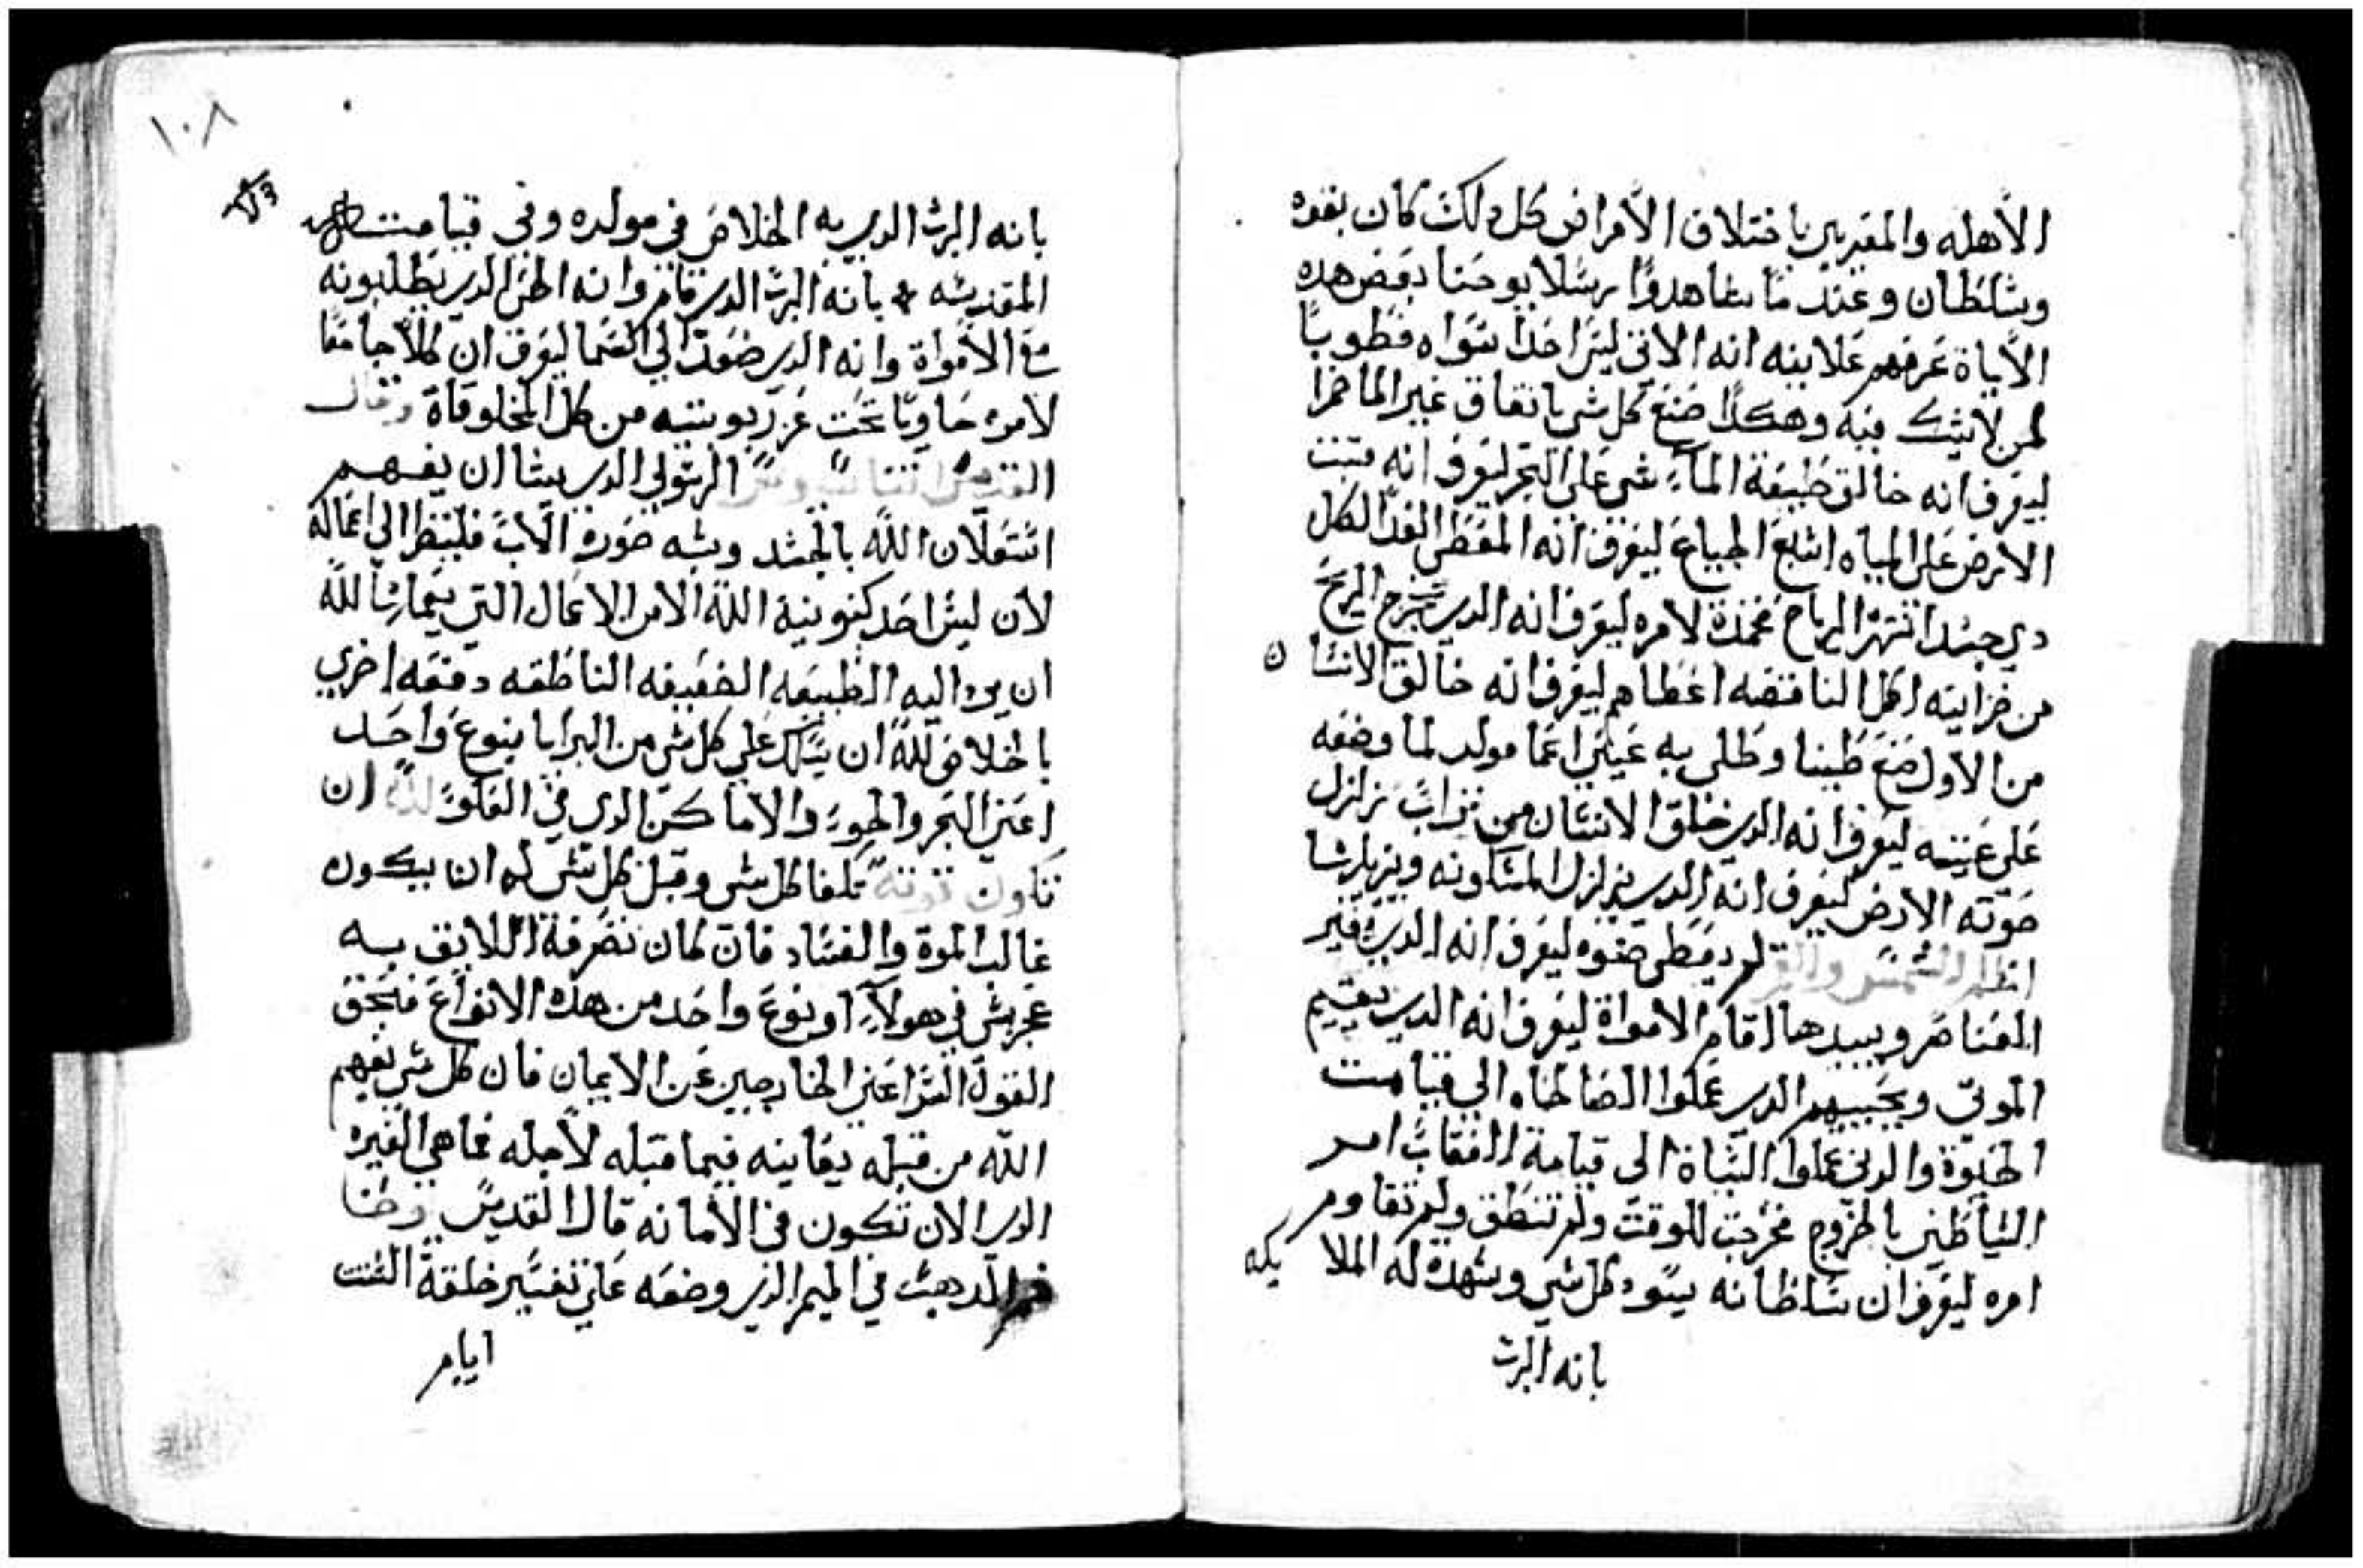 الأهله والمقيربن باختلاف الأمراض كل ذلك كان بقوه
وسلطان وعند ما شاهدوا رسلا يوحنا بعض هده
الأياة عرفهم علانيه انه الاتى ليس احدا سواه فطوبا
لمن لا يشك فيه وهكدا صنع كل شى باتفاق غير الما خمرا
ليعرف انه خالق طبيعة الماء مشى على البحر ليعرف انه متبت
الارض على المياه اشبع الجياع ليعرف انه المعطى الغدا لكل
دي جسد انتهر الرياح مخمدة لامره ليعرف انه الدي يخرج الريح
من خزاينه اكمل الناقصه اعطاهم ليعرف انه خالق الانسان
من الاول صنع طينا وطلى به عينى اعما مولد لما وضعه
على عينيه ليعرف انه الدي خلق الانسان من تراب زلزل
صوته الارض ليعرف انه الدي يزلزل المسكونه ويزيلها
اظلم الشمس والقمر لم يعطى ضوه ليعرف انه الدي يغير
العناصر ويبيدها اقام الامواة ليعرف انه الدي يقيم
الموتى ويحييهم الدي عملوا الصالحاه الي قيامت
الحيوة والدين عملوا السياة الى قيامة العقاب امر
الشياطين بالخروج فخرجت للوقت ولم تنطق ولم تقاوم
امره ليعرف ان سلطانه يسود كل شي وشهدة له الملايكه
بانه الرب
١٠٨
بانه الرب الدي به الخلاص في مولده وفي قيامته
المقدسه بانه الرب الدي قام وانه الحى الدي يطلبونه
مع الأمواة وانه الدي صعد الي السما ليعرف ان كلاً جامعا
لامره حاويًا تحت عز ربوبيته من كل المخلوقاة وقال
القديس اتناسيوس الرسولي الدي يشا ان يفهم
اشتعلان الله بالجسد وشبه صورة الاب فلينظر الي اعماله
لان ليس احد كينونية الله الا من الاعمال التي يمارس الله
ان يرد اليه الطبيعه الضعيفه الناطقه دفعه اخري
بالخلاص لله ان يملك علي كل شى من البرايا بنوع واحد
اعني البحر والجو والاماكن الدي في العلو لله ان
تكون قوته تلفا كل شى وقبل كل شى له ان يكون
غالب الموة والفساد فان كان تصرفه اللايق به
غريش في هولاء او نوع واحد من هده الانواع فبحق
القول السر اعني الخارجين عن الايمان فان كل شى يفهم
الله من قبله يعاينه فيما قبله لاجله فما هي الغيره
الدي الان تكون في الأمانه قال القديس يوحنا
فم الدهب في الميمر الدي وضعه على تفسير خلقة الست
ايام